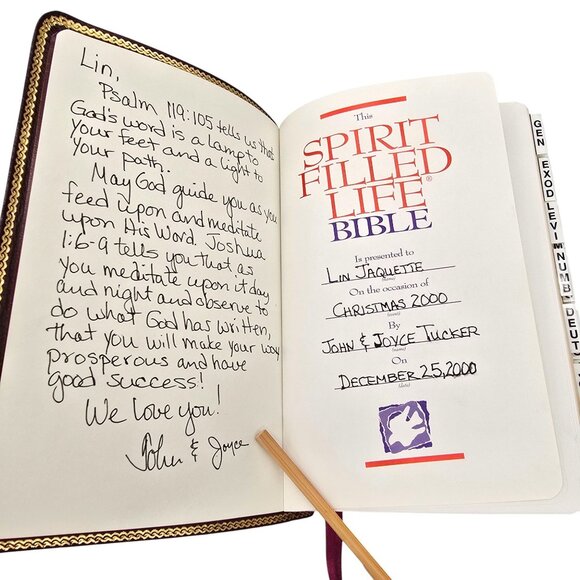 Lin,
Psalm 119:105 tells us that
God's word is a lamp to
your feet and a light to
your path.
May God guide you as you
feed upon and meditate
upon His Word. Joshua
1:6-9 tells you that as
you meditate upon it day
and night and observe to
do what God has written,
that you will make your way
prosperous and have
good success!
We love you!
John & Joyce
This
SPIRIT
FILLED
LIFE®
BIBLE
Is presented to
LIN JAQUETTE
(name)
On the occasion of
CHRISTMAS 2000
(event)
By
JOHN & JOYCE TUCKER
(name)
On
DECEMBER 25, 2000
(date)
GEN
EXOD
LEVI
NUMB
DEUT